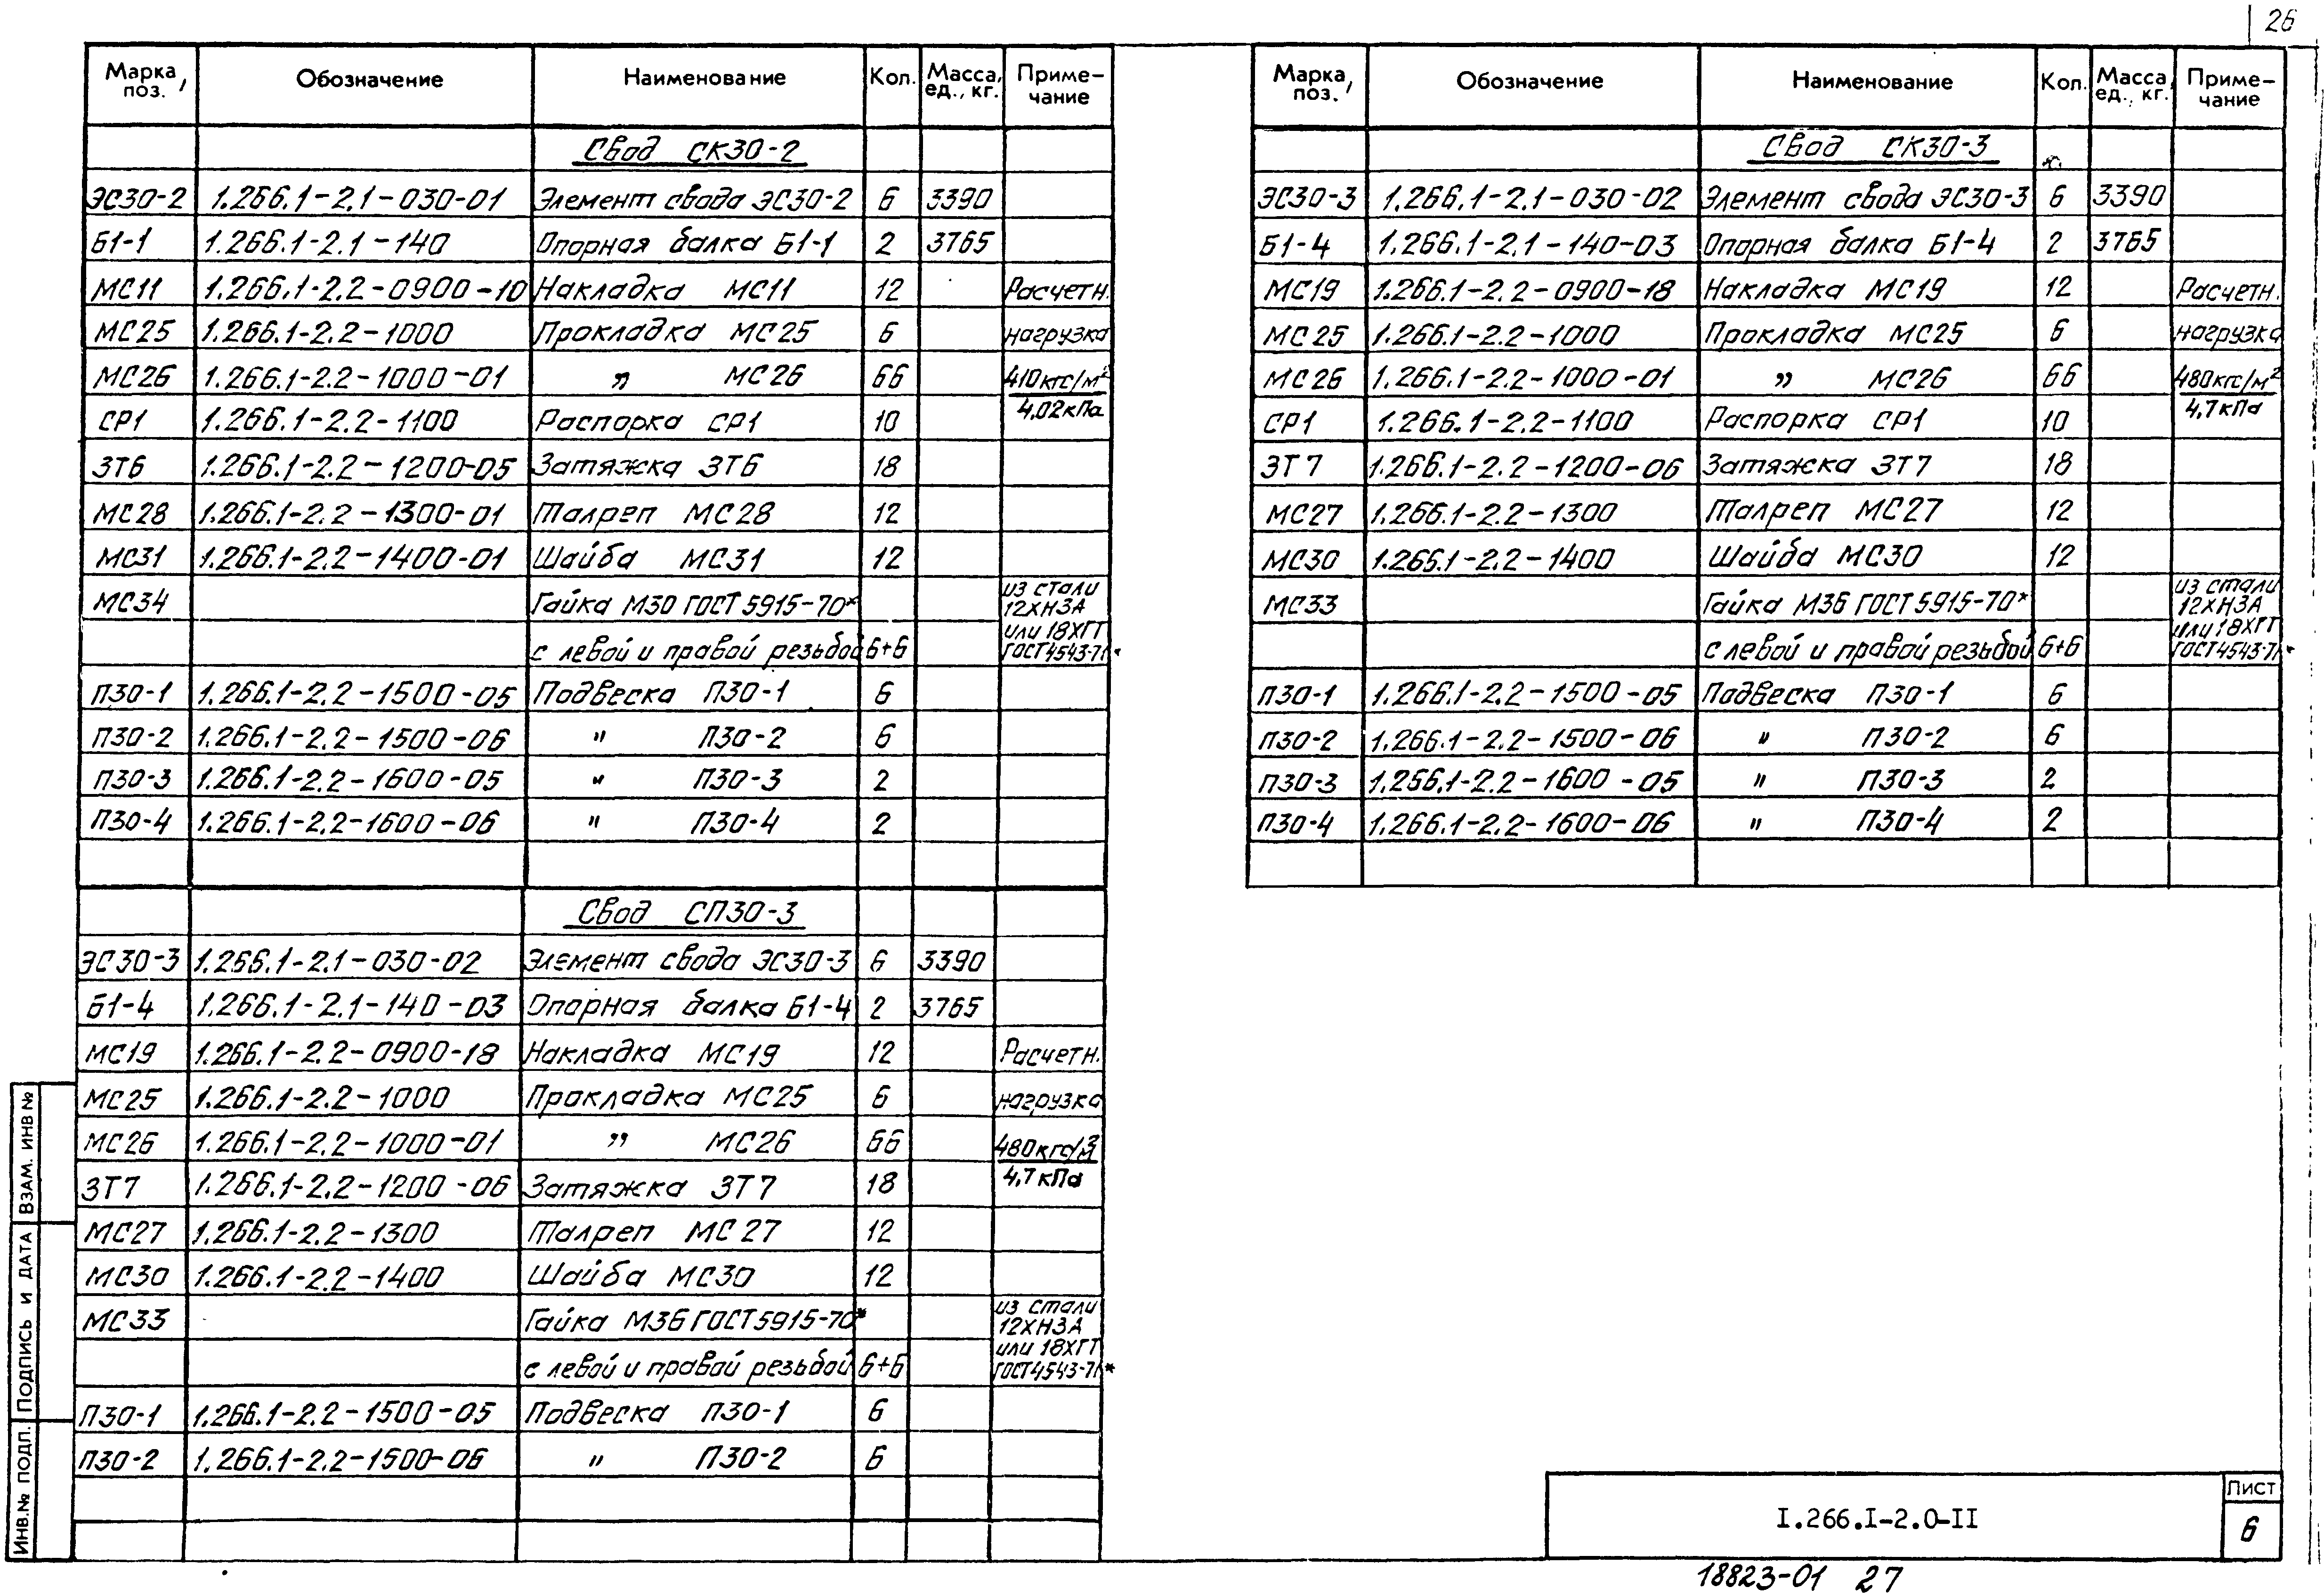 26
Марка, поз. Обозначение Наименование Кол. Масса, ед., кг. Приме-чание
Свод СК30-2
ЭС30-2 1.266.1-2.1-030-01 Элемент свода ЭС30-2 6 3390
Б1-1 1.266.1-2.1-140 Опорная балка Б1-1 2 3765
МС11 1.266.1-2.2-0900-10 Накладка МС11 12 Расчетн.
МС25 1.266.1-2.2-1000 Прокладка МС25 6 нагрузка
МС26 1.266.1-2.2-1000-01 " МС26 66 410кгс/м²
СР1 1.266.1-2.2-1100 Распорка СР1 10 4,02кПа
ЗТ6 1.266.1-2.2-1200-05 Затяжка ЗТ6 18
МС28 1.266.1-2.2-1300-01 Талреп МС28 12
МС31 1.266.1-2.2-1400-01 Шайба МС31 12
МС34 Гайка М30 ГОСТ 5915-70* из стали 12ХН3А
с левой и правой резьбой 6+6 или 18ХГТ ГОСТ4543-71*
П30-1 1.266.1-2.2-1500-05 Подвеска П30-1 6
П30-2 1.266.1-2.2-1500-06 " П30-2 6
П30-3 1.266.1-2.2-1600-05 " П30-3 2
П30-4 1.266.1-2.2-1600-06 " П30-4 2
Свод СП30-3
ЭС30-3 1.266.1-2.1-030-02 Элемент свода ЭС30-3 6 3390
Б1-4 1.266.1-2.1-140-03 Опорная балка Б1-4 2 3765
МС19 1.266.1-2.2-0900-18 Накладка МС19 12 Расчетн.
МС25 1.266.1-2.2-1000 Прокладка МС25 6 нагрузка
МС26 1.266.1-2.2-1000-01 " МС26 66 480кгс/м²
ЗТ7 1.266.1-2.2-1200-06 Затяжка ЗТ7 18 4,7кПа
МС27 1.266.1-2.2-1300 Талреп МС27 12
МС30 1.266.1-2.2-1400 Шайба МС30 12
МС33 Гайка М36 ГОСТ5915-70* из стали 12ХН3А
с левой и правой резьбой 6+6 или 18ХГТ ГОСТ4543-71*
П30-1 1.266.1-2.2-1500-05 Подвеска П30-1 6
П30-2 1.266.1-2.2-1500-06 " П30-2 6
Марка, поз. Обозначение Наименование Кол. Масса, ед., кг. Приме-чание
Свод СК30-3
ЭС30-3 1.266.1-2.1-030-02 Элемент свода ЭС30-3 6 3390
Б1-4 1.266.1-2.1-140-03 Опорная балка Б1-4 2 3765
МС19 1.266.1-2.2-0900-18 Накладка МС19 12 Расчетн.
МС25 1.266.1-2.2-1000 Прокладка МС25 6 нагрузка
МС26 1.266.1-2.2-1000-01 " МС26 66 480кгс/м²
СР1 1.266.1-2.2-1100 Распорка СР1 10 4,7кПа
ЗТ7 1.266.1-2.2-1200-06 Затяжка ЗТ7 18
МС27 1.266.1-2.2-1300 Талреп МС27 12
МС30 1.266.1-2.2-1400 Шайба МС30 12
МС33 Гайка М36 ГОСТ5915-70* из стали 12ХН3А
с левой и правой резьбой 6+6 или 18ХГТ ГОСТ4543-71*
П30-1 1.266.1-2.2-1500-05 Подвеска П30-1 6
П30-2 1.266.1-2.2-1500-06 " П30-2 6
П30-3 1.266.1-2.2-1600-05 " П30-3 2
П30-4 1.266.1-2.2-1600-06 " П30-4 2
ИНВ.№ ПОДП. ПОДПИСЬ И ДАТА ВЗАМ. ИНВ №
I.266.I-2.0-II
Лист
6
18823-01 27